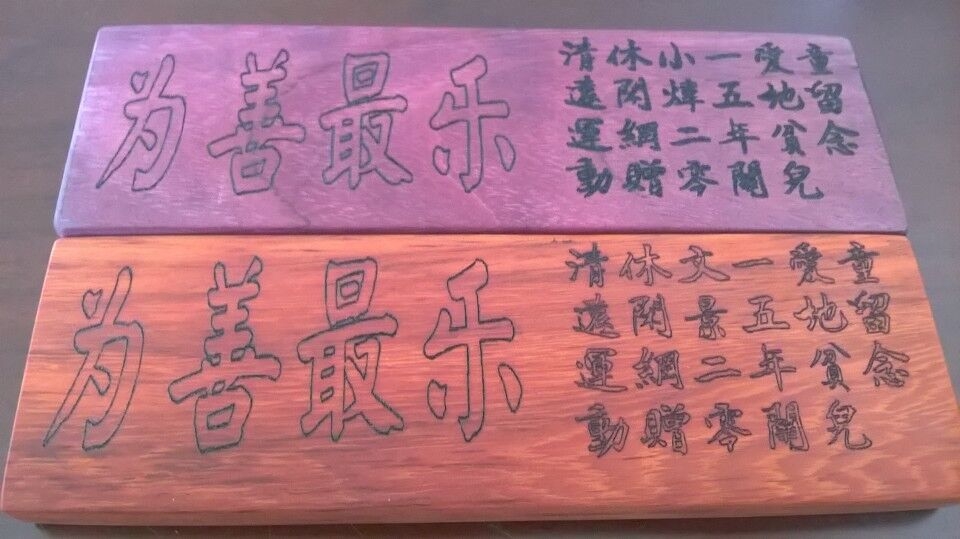 为善最乐
清遠運動
休閑網贈
小煒二零
一五年關
愛地貧兒
童留念
为善最乐
清遠運動
休閑網贈
文景二零
一五年關
愛地貧兒
童留念